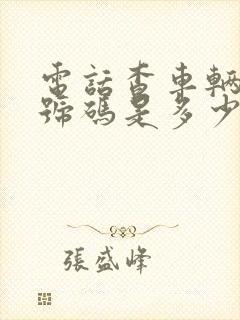 電話查車輛
號碼是多少
張盛峰